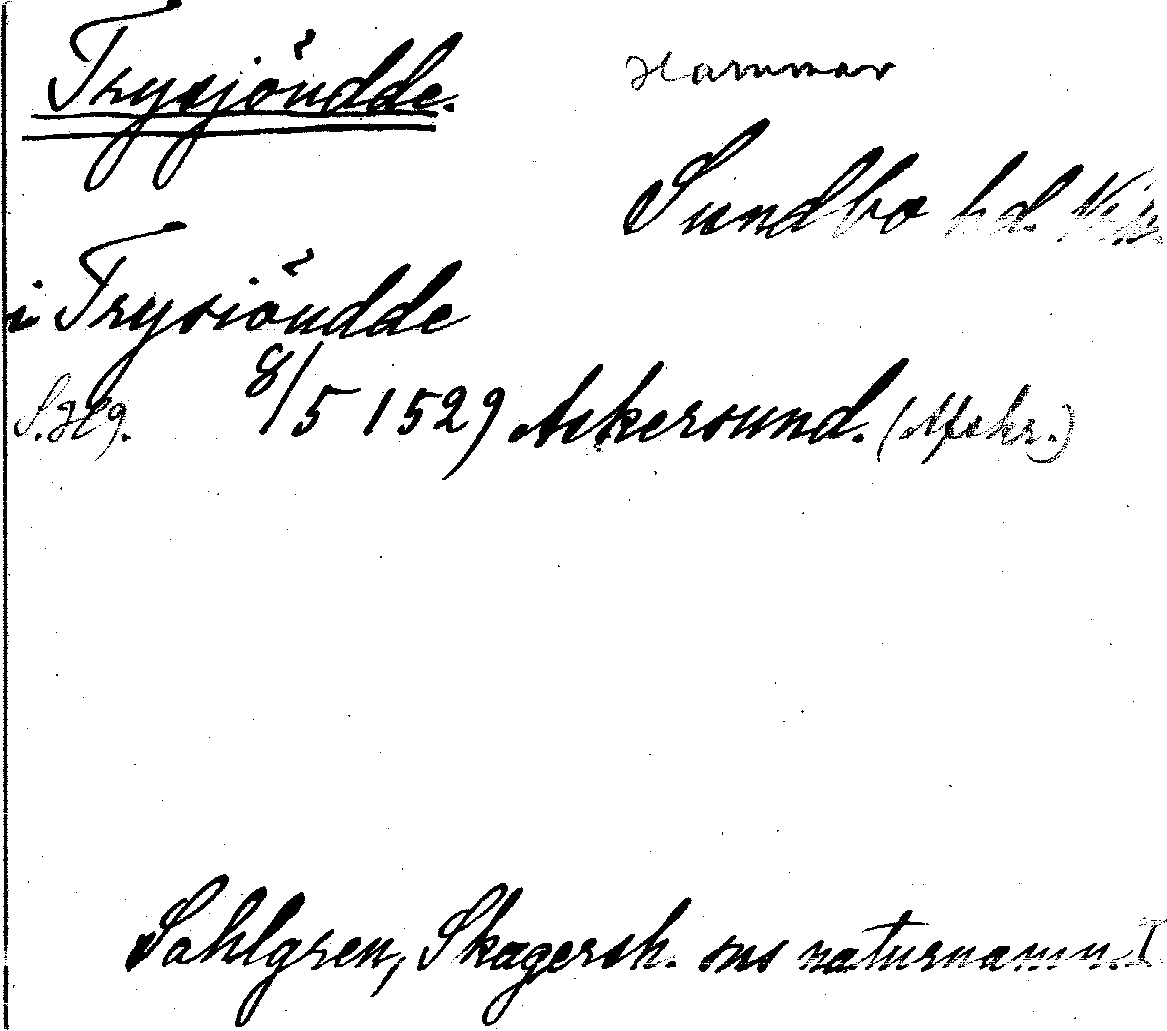 Trysjöudde.
Hammar
Sundbo hd. När
i Trysiöudde
S.Hg. 8/5 1529 Askersund. (Afskr.)
Sahlgren, Skagersh. sns naturnamn. I